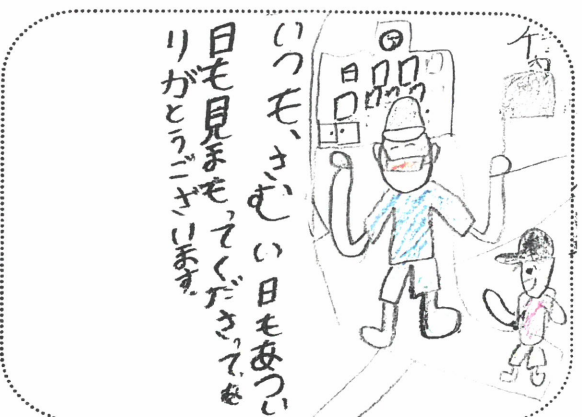 いつも、さむい日もあつい
日も見まもってくださって、あ
りがとうございます。